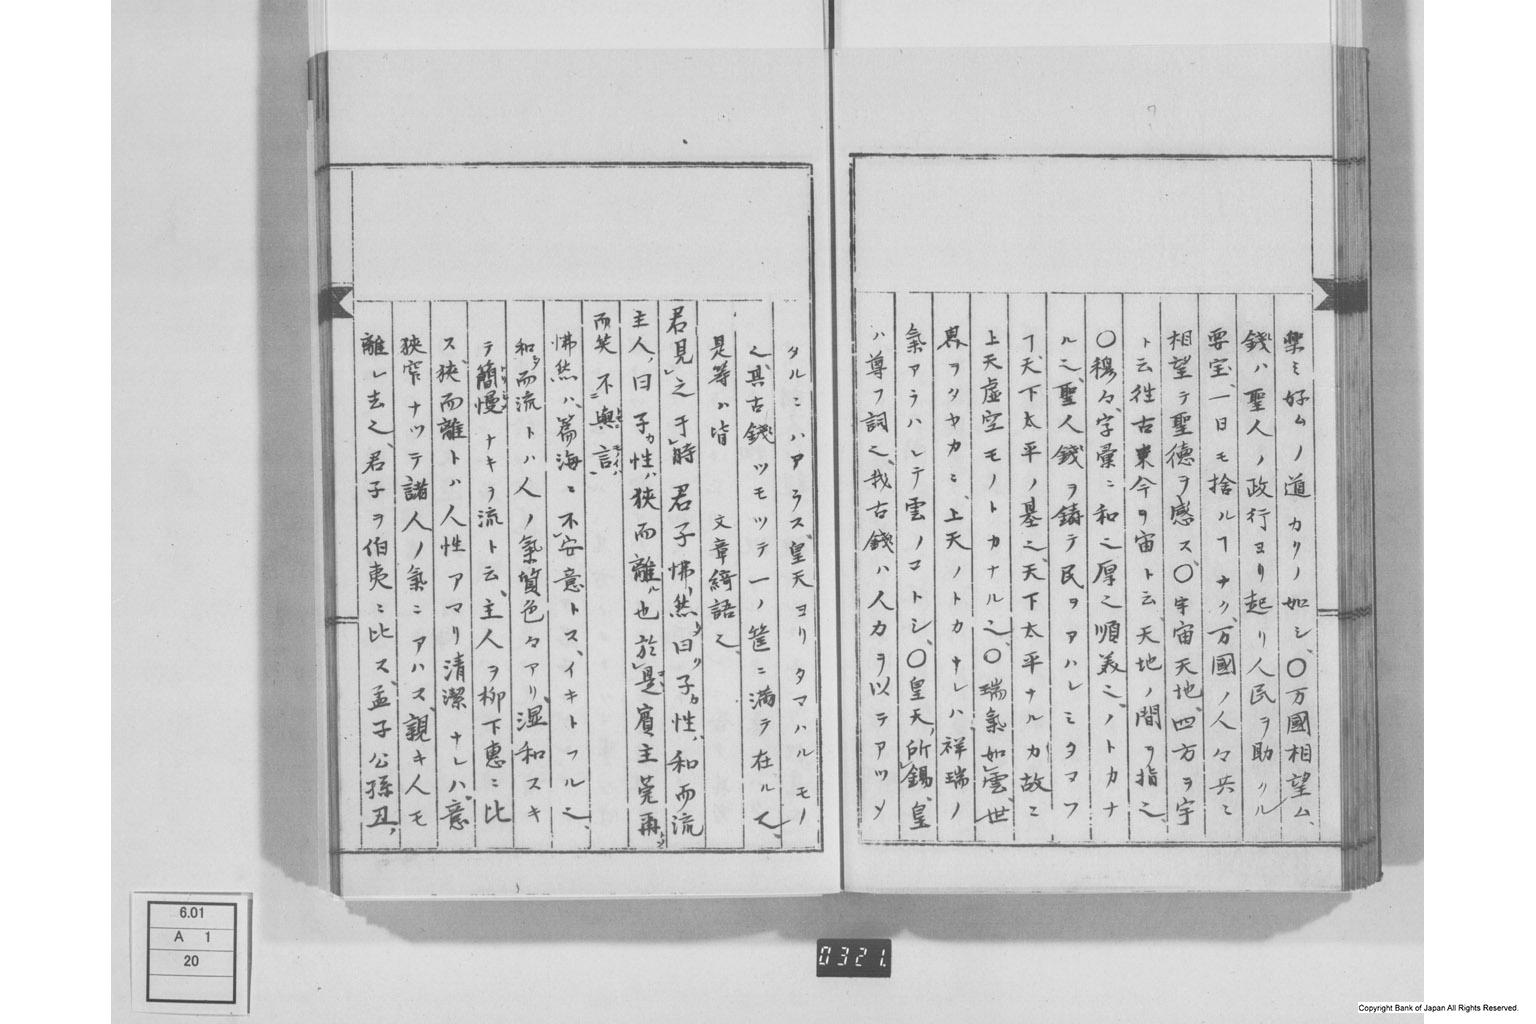 樂ミ好ムノ道カクノ如シ、〇万國相望ム、
錢ハ聖人ノ政行ヨリ起リ人民ヲ助クル
要宝、一日モ捨ルヿナク、万國ノ人々共ニ
相望テ聖徳ヲ感ス、〇宇宙天地四方ヲ宇
ト云往古来今ヲ宙ト云、天地ノ間ヲ指之、
〇穆々、字彙ニ和之厚之順美之、ノトカナ
ル之、聖人錢ヲ鋳テ民ヲアハレミタマフ
ヿ天下太平ノ基之、天下太平ナルカ故ニ
上天虚空モノトカナル之、〇瑞氣如雲、世
界ヲタヤカニ、上天ノトカナレハ、祥瑞ノ
氣アラハレテ雲ノコトシ、〇皇天所錫、皇
ハ尊フ詞之、我古錢ハ人力ヲ以テアツメ
タルニハアラス、皇天ヨリタマハルモノ
之、其古錢ツモツテ一ノ筐ニ満テ在ル之、
是等ハ皆文章綺語之、
君見之于時君子怫然曰子性和而流
主人曰子性狹而離也於是賓主莞再
而笑不與言
怫然ハ、篇海ニ不安意トス、イキトフル之、
和而流トハ人ノ氣質色々アリ、温和スキ
テ簡慢ナキヲ流ト云、主人ヲ柳下惠ニ比
ス、狹而離トハ人性アマリ清潔ナレハ、意
狹窄ナツテ諸人ノ氣ニアハス、親キ人モ
離レ去之、君子ヲ伯夷ニ比ス、孟子公孫丑、
6.01
A 1
20
0321.
Copyright Bank of Japan All Rights Reserved.